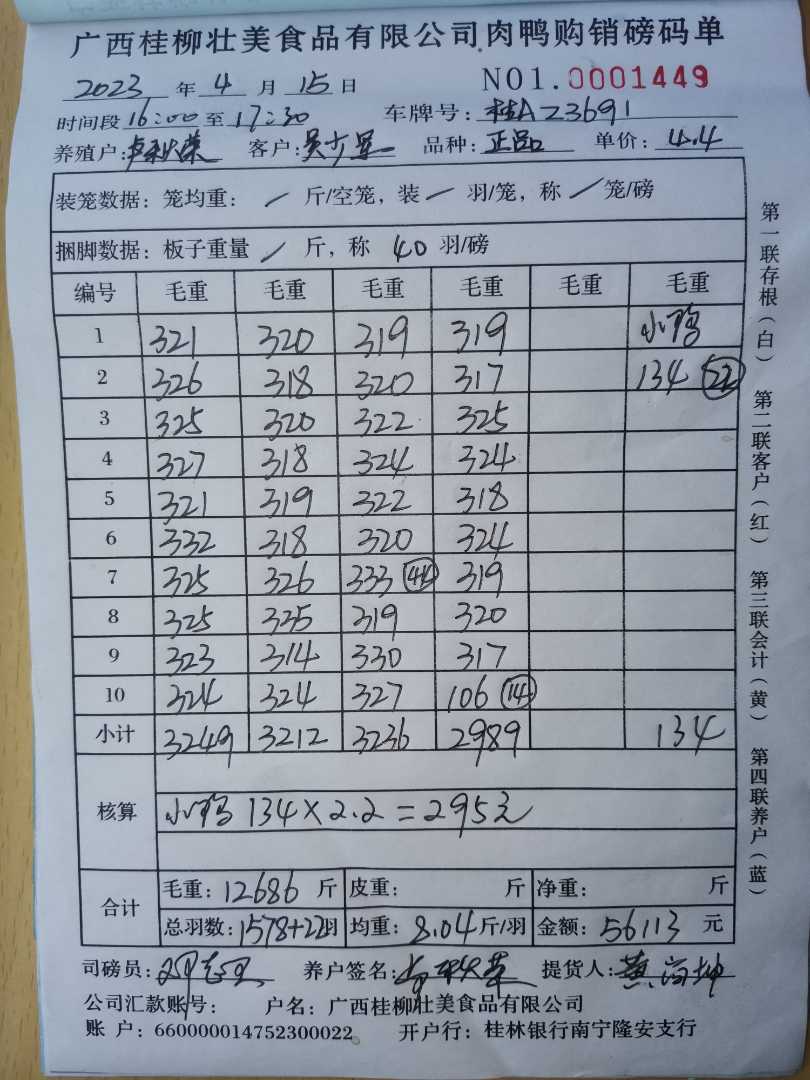 广西桂柳壮美食品有限公司肉鸭购销磅码单
2023 年 4 月 15 日 NO1.0001449
时间段 16:00 至 17:30 车牌号: 桂A23691
养殖户: 客户: 吴 品种: 正品 单价: 4.4
装笼数据: 笼均重: / 斤/空笼, 装 / 羽/笼, 称 / 笼/磅
捆脚数据: 板子重量 / 斤, 称 40 羽/磅
编号 毛重 毛重 毛重 毛重 毛重 毛重
1 321 320 319 319 小鸭
2 326 318 320 317 134 22
3 325 320 322 325
4 327 318 324 324
5 321 319 322 318
6 332 318 320 324
7 325 326 333 41 319
8 325 335 319 320
9 323 314 330 317
10 324 324 327 106 14
小计 3249 3212 3236 2989 134
核算
小鸭 134×2.2=295元
合计
毛重: 12686 斤 皮重: 斤 净重: 斤
总羽数: 1578+22羽 均重: 8.04 斤/羽 金额: 56113 元
司磅员: 养户签名: 提货人: 黄海坤
公司汇款账号: 户名: 广西桂柳壮美食品有限公司
账 户: 660000014752300022 开户行: 桂林银行南宁隆安支行
第一联存根(白) 第二联客户(红) 第三联会计(黄) 第四联养户(蓝)